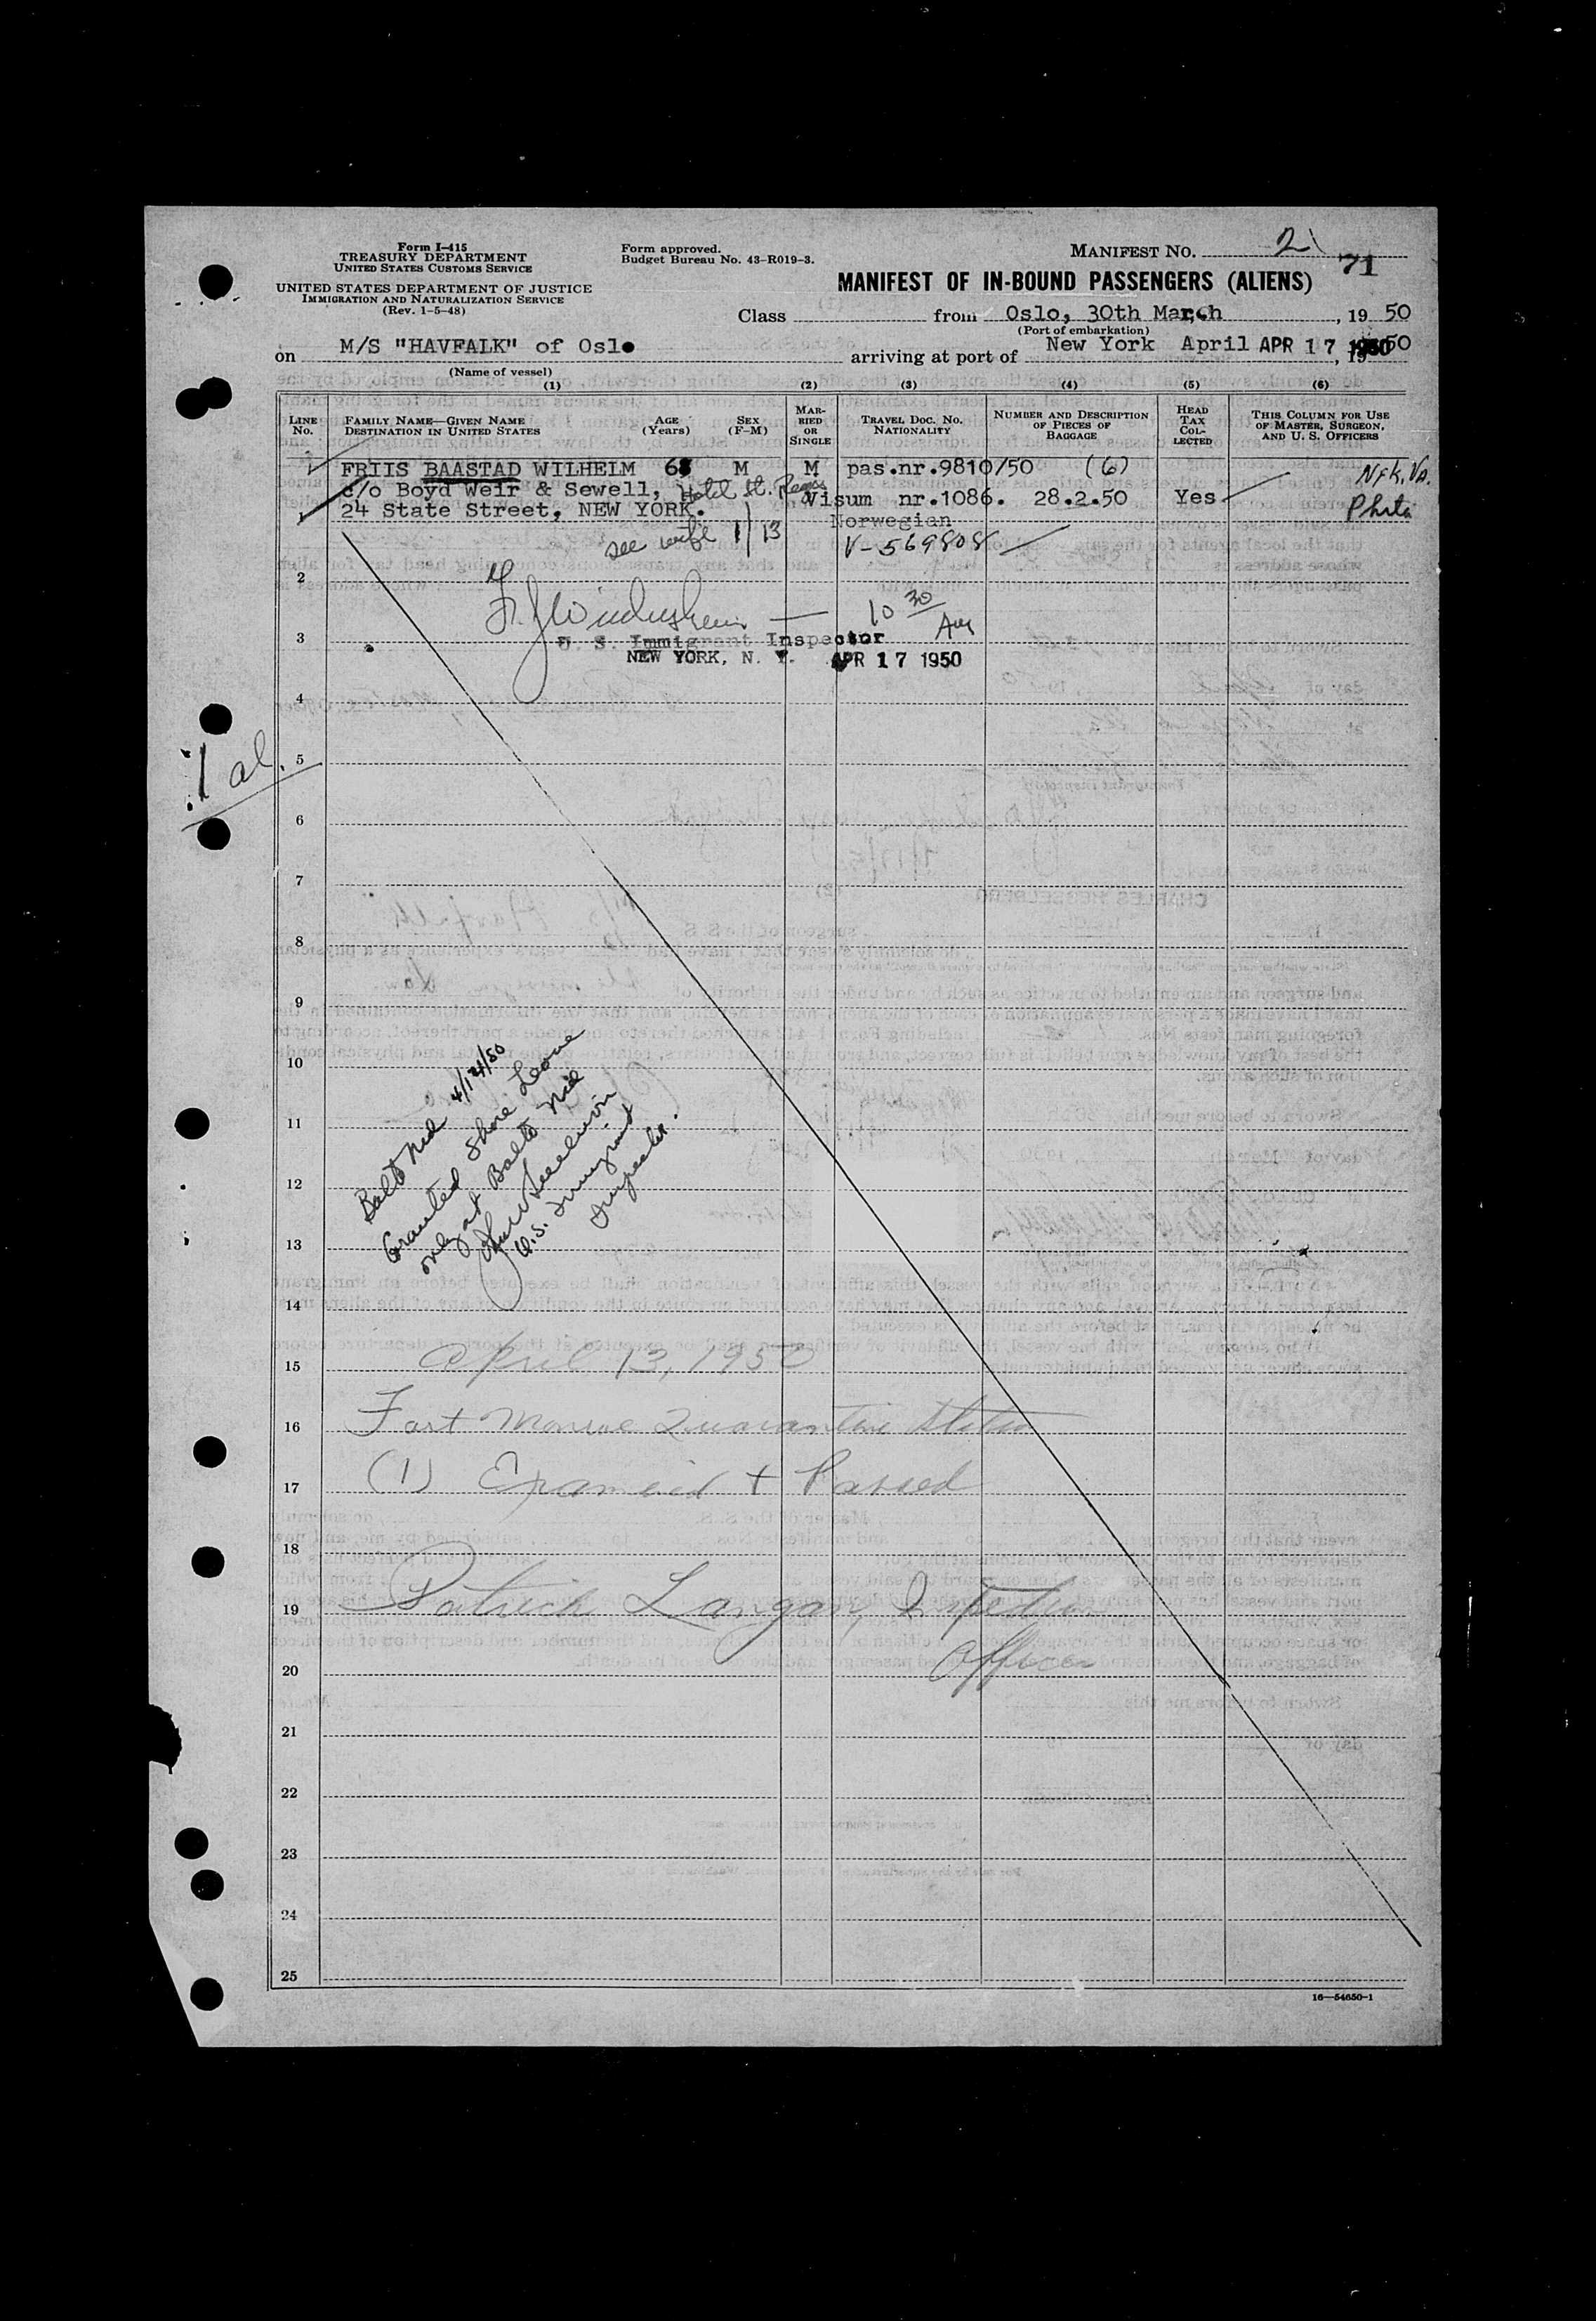 Form I-415
TREASURY DEPARTMENT
UNITED STATES CUSTOMS SERVICE
UNITED STATES DEPARTMENT OF JUSTICE
IMMIGRATION AND NATURALIZATION SERVICE
(Rev. 1-5-48)
Form approved.
Budget Bureau No. 43-R019-3.
MANIFEST NO. 2
71
MANIFEST OF IN-BOUND PASSENGERS (ALIENS)
Class from Oslo, 30th March, 1950
(Port of embarkation)
on M/S "HAVFALK" of Oslo arriving at port of New York April APR 17 1950, 1950
(Name of vessel)
(1) (2) (3) (4) (5) (6)
LINE No.
FAMILY NAME—GIVEN NAME
DESTINATION IN UNITED STATES
AGE (Years)
SEX (F-M)
MARRIED OR SINGLE
TRAVEL DOC. NO.
NATIONALITY
NUMBER AND DESCRIPTION OF PIECES OF BAGGAGE
HEAD TAX COLLECTED
THIS COLUMN FOR USE OF MASTER, SURGEON, AND U. S. OFFICERS
FRIIS BAASTAD WILHELM M M pas.nr.9810/50 (6) Nfk, Va.
c/o Boyd Weir & Sewell, Hotel St. Regis Visum nr.1086. 28.2.50 Yes Phila
1 24 State Street, NEW YORK.
Norwegian
see wife 1/13 V-569808
2
10 30
3
U. S. Immigrant Inspector
NEW YORK, N. Y. APR 17 1950
4
1 al.
5
6
7
8
9
10
11
12
13
14
Balto Md 4/14/50
Granted Shore Leave
only at Balto Md
U.S. Immigrant
Inspector.
15 April 13, 1950
16 Fort Monroe Quarantine Station
17 (1) Examined + Passed
18
19 Patrick Langan, Inspection
20 Officer
21
22
23
24
25
16—54650-1